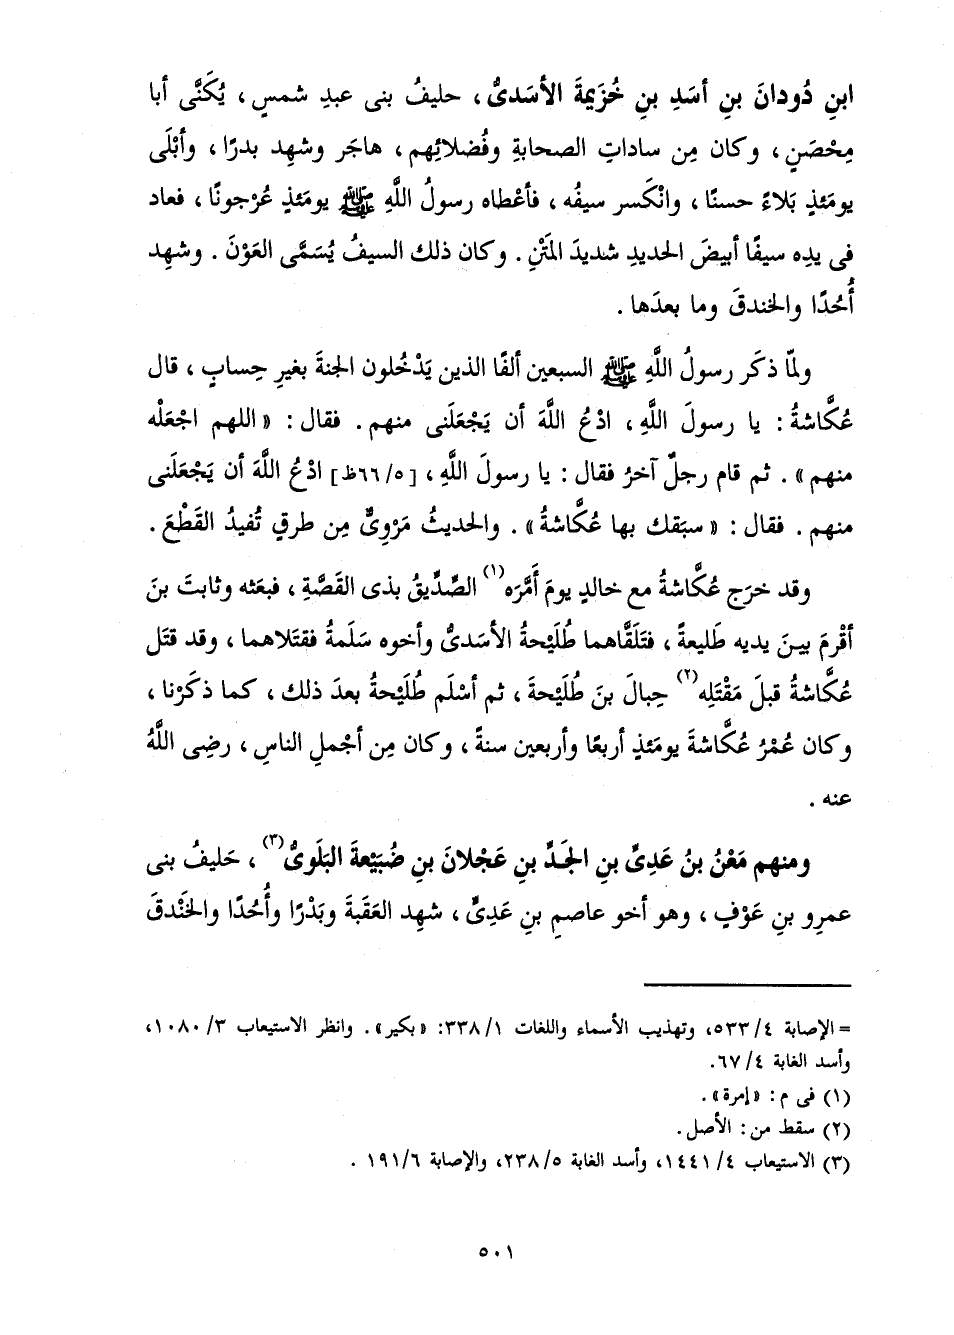 ابنِ دُودانَ بنِ أسَدِ بنِ خُزَيمةَ الأسَدىُّ، حليفُ بنى عبدِ شمسٍ، يُكَنَّى أبا
مِحْصَنٍ، وكان مِن ساداتِ الصحابةِ وفُضلائِهم، هاجَر وشهِد بدرًا، وأبْلَى
يومَئذٍ بَلاءً حسنًا، وانْكَسر سيفُه، فأعْطاه رسولُ اللَّهِ ﷺ يومَئذٍ عُرْجونًا، فعاد
فى يدِه سيفًا أبيضَ الحديدِ شديدَ المَتْنِ. وكان ذلك السيفُ يُسَمَّى العَوْنَ. وشهِد
أُحُدًا والخندقَ وما بعدَها.
ولمّا ذكَر رسولُ اللَّهِ ﷺ السبعين ألفًا الذين يَدْخُلون الجنةَ بغيرِ حِسابٍ، قال
عُكَّاشةُ: يا رسولَ اللَّهِ، ادْعُ اللَّهَ أن يَجْعَلَنى منهم. فقال: «اللهم اجْعَلْه
منهم». ثم قام رجلٌ آخرُ فقال: يا رسولَ اللَّهِ، [٥/٦٦ظ] ادْعُ اللَّهَ أن يَجْعَلَنى
منهم. فقال: «سبَقك بها عُكَّاشةُ». والحديثُ مَرْوِىٌّ مِن طرقٍ تُفيدُ القَطْعَ.
وقد خرَج عُكَّاشةُ مع خالدٍ يومَ أَمَّرَه(١) الصِّدِّيقُ بذى القَصَّةِ، فبعَثه وثابتَ بنَ
أقْرمَ بينَ يديه طَليعةً، فتَلَقَّاهما طُلَيْحةُ الأسَدىُّ وأخوه سَلَمةُ فقتَلاهما، وقد قتَل
عُكَّاشةُ قبلَ مَقْتَلِه(٢) حِبالَ بنَ طُلَيْحةَ، ثم أسْلَم طُلَيْحةُ بعدَ ذلك، كما ذكَرْنا،
وكان عُمْرُ عُكَّاشةَ يومَئذٍ أربعًا وأربعين سنةً، وكان مِن أجْملِ الناسِ، رضِى اللَّهُ
عنه.
ومنهم مَعْنُ بنُ عَدِىِّ بنِ الجَدِّ بنِ عَجْلانَ بنِ ضُبَيْعةَ البَلَوىُّ(٣)، حَليفُ بنى
عمرِو بنِ عَوْفٍ، وهو أخو عاصمِ بنِ عَدِىٍّ، شهِد العَقَبةَ وبَدْرًا وأُحُدًا والخَنْدقَ
= الإصابة ٤/ ٥٣٣، وتهذيب الأسماء واللغات ١/ ٣٣٨: «بكير». وانظر الاستيعاب ٣/ ١٠٨٠،
وأسد الغابة ٤/ ٦٧.
(١) فى م: «إمرة».
(٢) سقط من: الأصل.
(٣) الاستيعاب ٤/ ١٤٤١، وأسد الغابة ٥/ ٢٣٨، والإصابة ٦/ ١٩١.
٥٠١